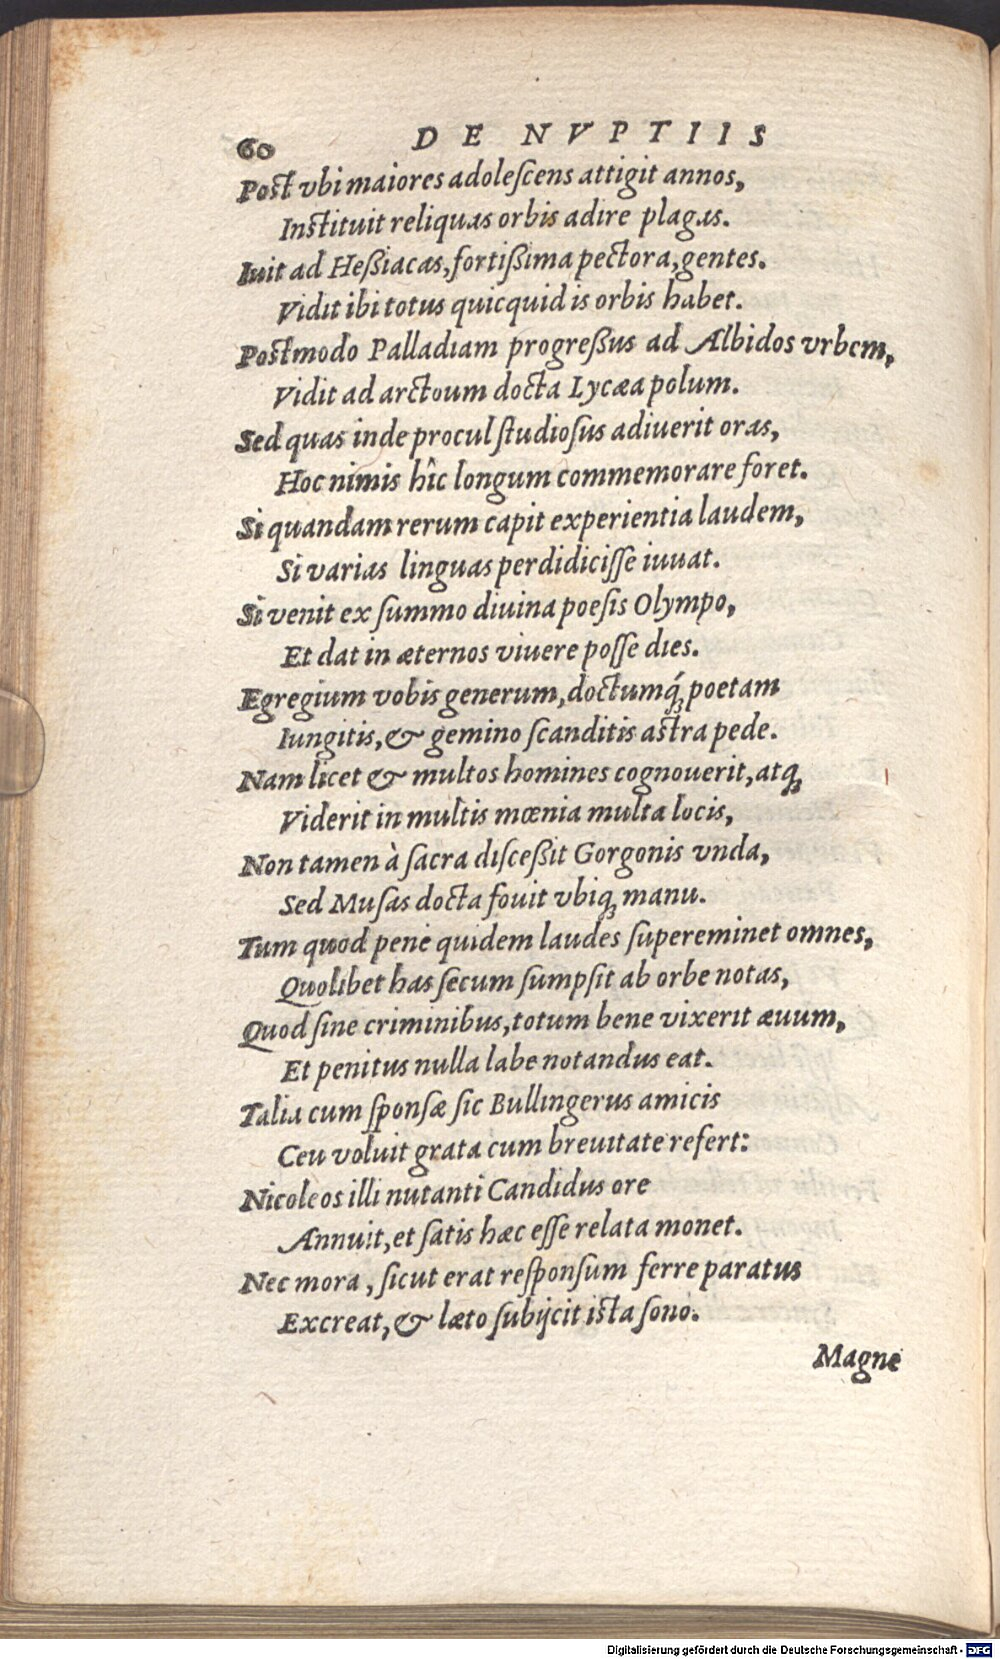 60 DE NVPTIIS
Post vbi maiores adolescens attigit annos,
Instituit reliquas orbis adire plagas.
Iuit ad Heßiacas, fortißima pectora, gentes.
Vidit ibi totus quicquid is orbis habet.
Postmodo Palladiam progreßus ad Albidos vrbem,
Vidit ad arctoum docta Lycæa polum.
Sed quas inde procul studiosus adiuerit oras,
Hoc nimis hîc longum commemorare foret.
Si quandam rerum capit experientia laudem,
Si varias linguas perdidicisse iuuat.
Si venit ex summo diuina poesis Olympo,
Et dat in æternos viuere posse dies.
Egregium vobis generum, doctumq́; poetam
Iungitis, & gemino scanditis astra pede.
Nam licet & multos homines cognouerit, atq;
Viderit in multis mœnia multa locis,
Non tamen à sacra disceßit Gorgonis vnda,
Sed Musas docta fouit vbiq; manu.
Tum quod penè quidem laudes supereminet omnes,
Quolibet has secum sumpsit ab orbe notas,
Quod sine criminibus, totum bene vixerit æuum,
Et penitus nulla labe notandus eat.
Talia cum sponsæ sic Bullingerus amicis
Ceu voluit grata cum breuitate refert:
Nicoleos illi nutanti Candidus ore
Annuit, et satis hæc esse relata monet.
Nec mora, sicut erat responsum ferre paratus
Excreat, & læto subijcit ista sono.
Magne
Digitalisierung gefördert durch die Deutsche Forschungsgemeinschaft - DFG